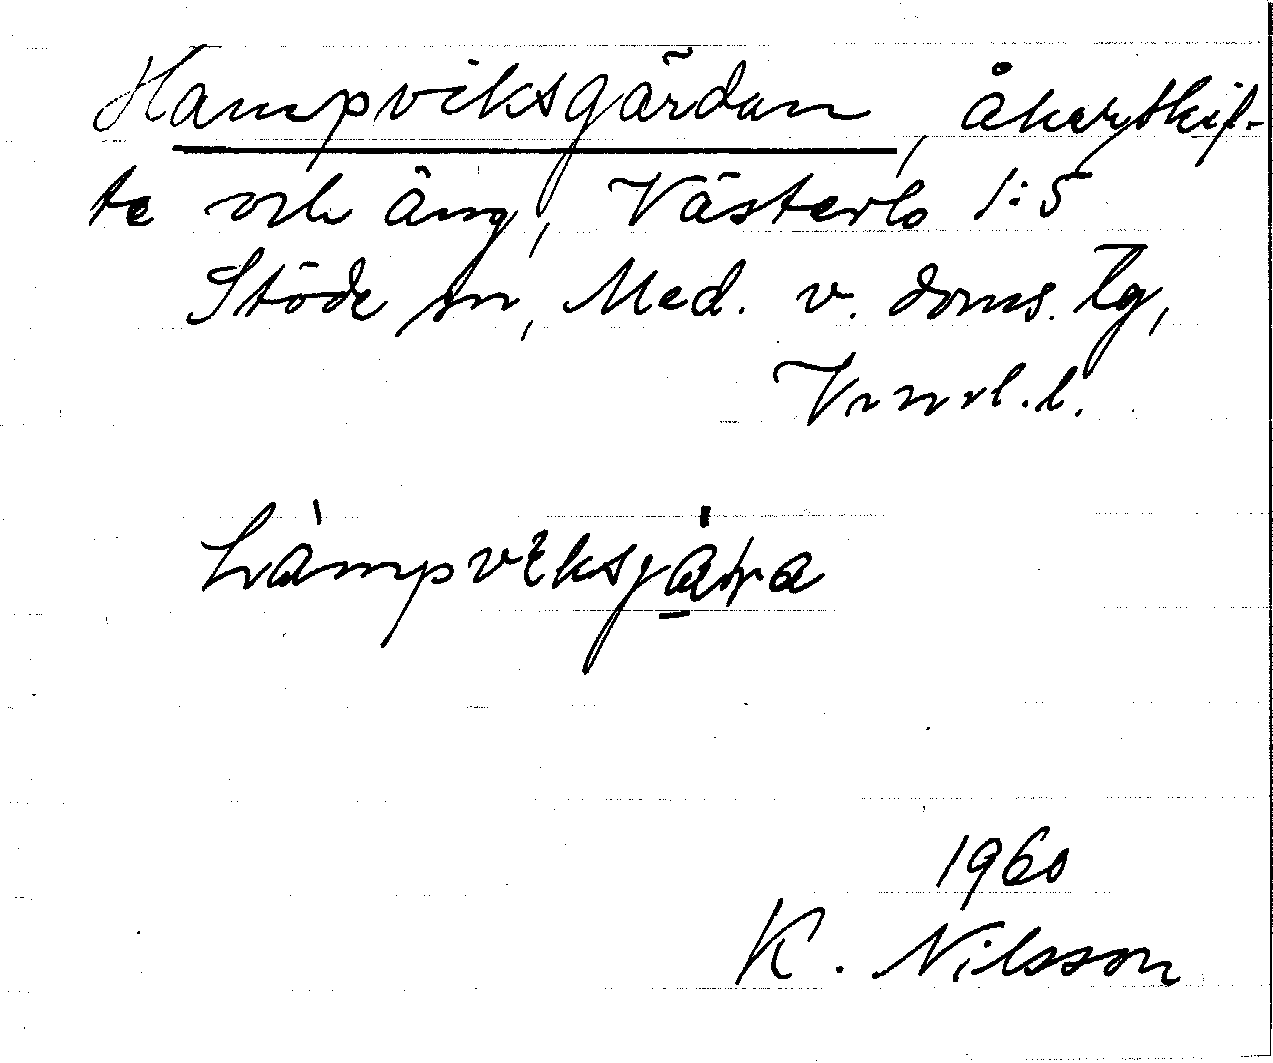 Hampviksgärdan, åkerskif-
te och äng, Västerlo 1:5
Stöde sn, Med. v. doms. tg,
Vnrl. l.
hàmpviksjäɽa
1960
K. Nilsson